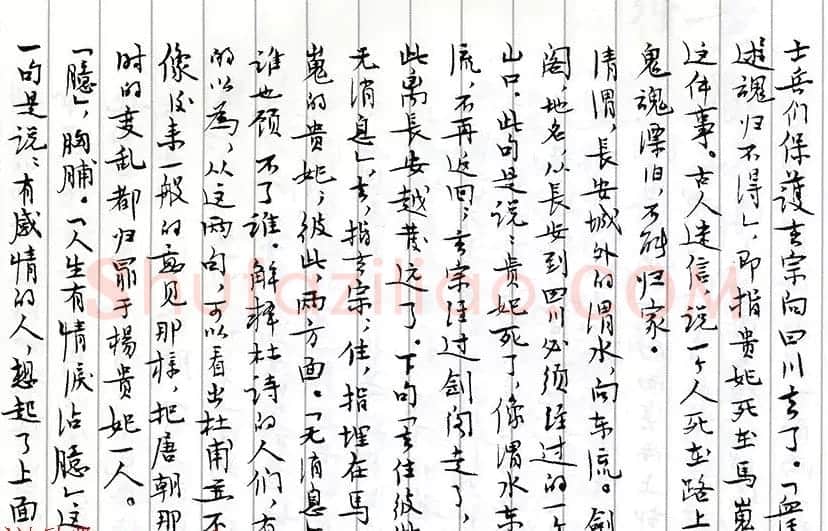 士兵们保護玄宗向四川去了。「血
遊魂归不得」,即指贵妃死在馬嵬
这件事。古人迷信,说一个人死在路上
鬼魂漂泊,不能归家。
清渭,長安城外的渭水,向东流。剑
阁,地名,从長安到四川必须经过的一个
山口。此句是说:贵妃死了,像渭水东
流,不再返回;玄宗经过剑阁走了,
此离長安越发远了。下句「去住彼此
无消息」去,指玄宗;住,指埋在馬
嵬的贵妃;彼此,两方面。「无消息
谁也顾不了谁。解释杜诗的人们,有
的以為,从这两句,可以看出杜甫並不
像后来一般的意见那样,把唐朝那
时的变乱都归罪于楊贵妃一人。
「臆」,胸脯。「人生有情淚沾臆」这
一句是说:有感情的人,想起了上面
Shufaziliao.COM